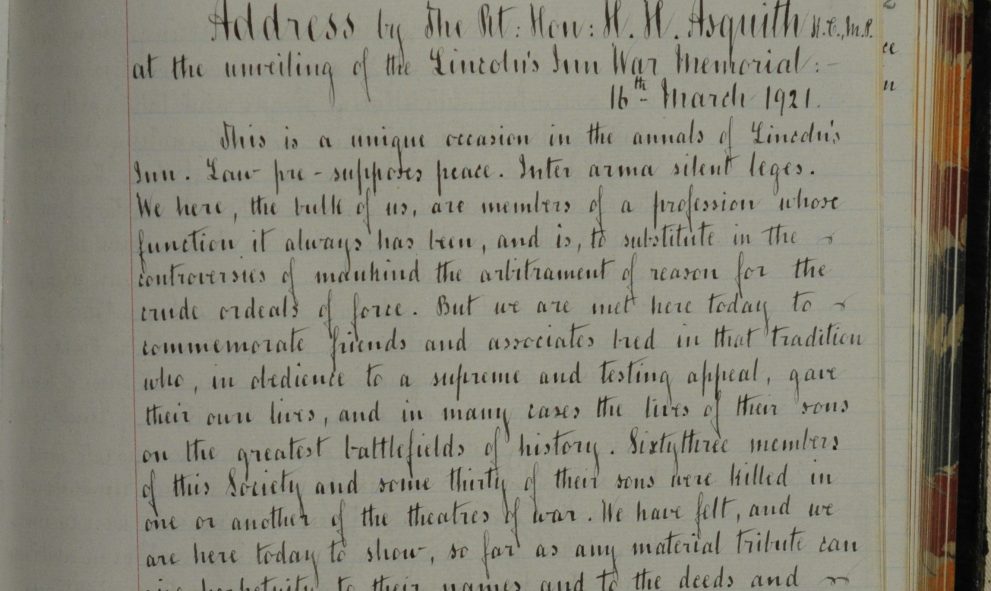 Address by The Rt: Hon: H. H. Asquith K.C., M.P.
at the unveiling of the Lincoln's Inn War Memorial:-
16th March 1921.
This is a unique occasion in the annals of Lincoln's
Inn. Law pre-supposes peace. Inter arma silent leges.
We here, the bulk of us, are members of a profession whose
function it always has been, and is, to substitute in the
controversies of mankind the arbitrament of reason for the
crude ordeals of force. But we are met here today to
commemorate friends and associates bred in that tradition
who, in obedience to a supreme and testing appeal, gave
their own lives, and in many cases the lives of their sons
on the greatest battlefields of history. Sixtythree members
of this Society and some thirty of their sons were killed in
one or another of the theatres of war. We have felt, and we
are here today to show, so far as any material tribute can
give perpetuity to their names and to the deeds and